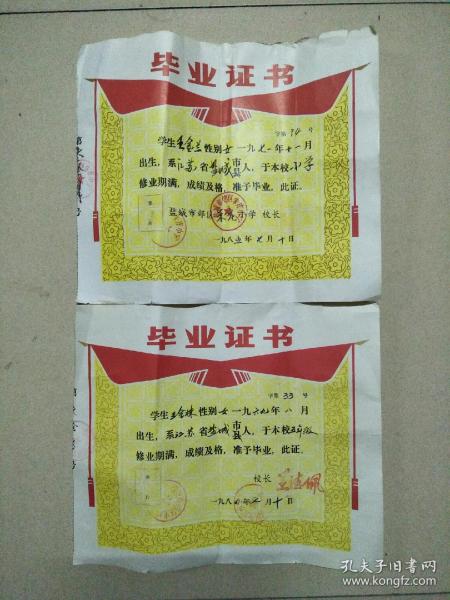 毕业证书
字第 34 号
学生王金兰性别女一九七一年十一月
出生，系江苏省盐城市县人，于本校小学
修业期满，成绩及格，准予毕业。此证。
盐城市郊区 小学 校长
一九八五年七月十日
毕业证书
字第 33 号
学生王金妹性别女一九六九年八月
出生，系江苏省盐城市县人，于本校五年级
修业期满，成绩及格，准予毕业，此证。
校长
一九八 年七月十日
孔夫子旧书网
www.kongfz.com